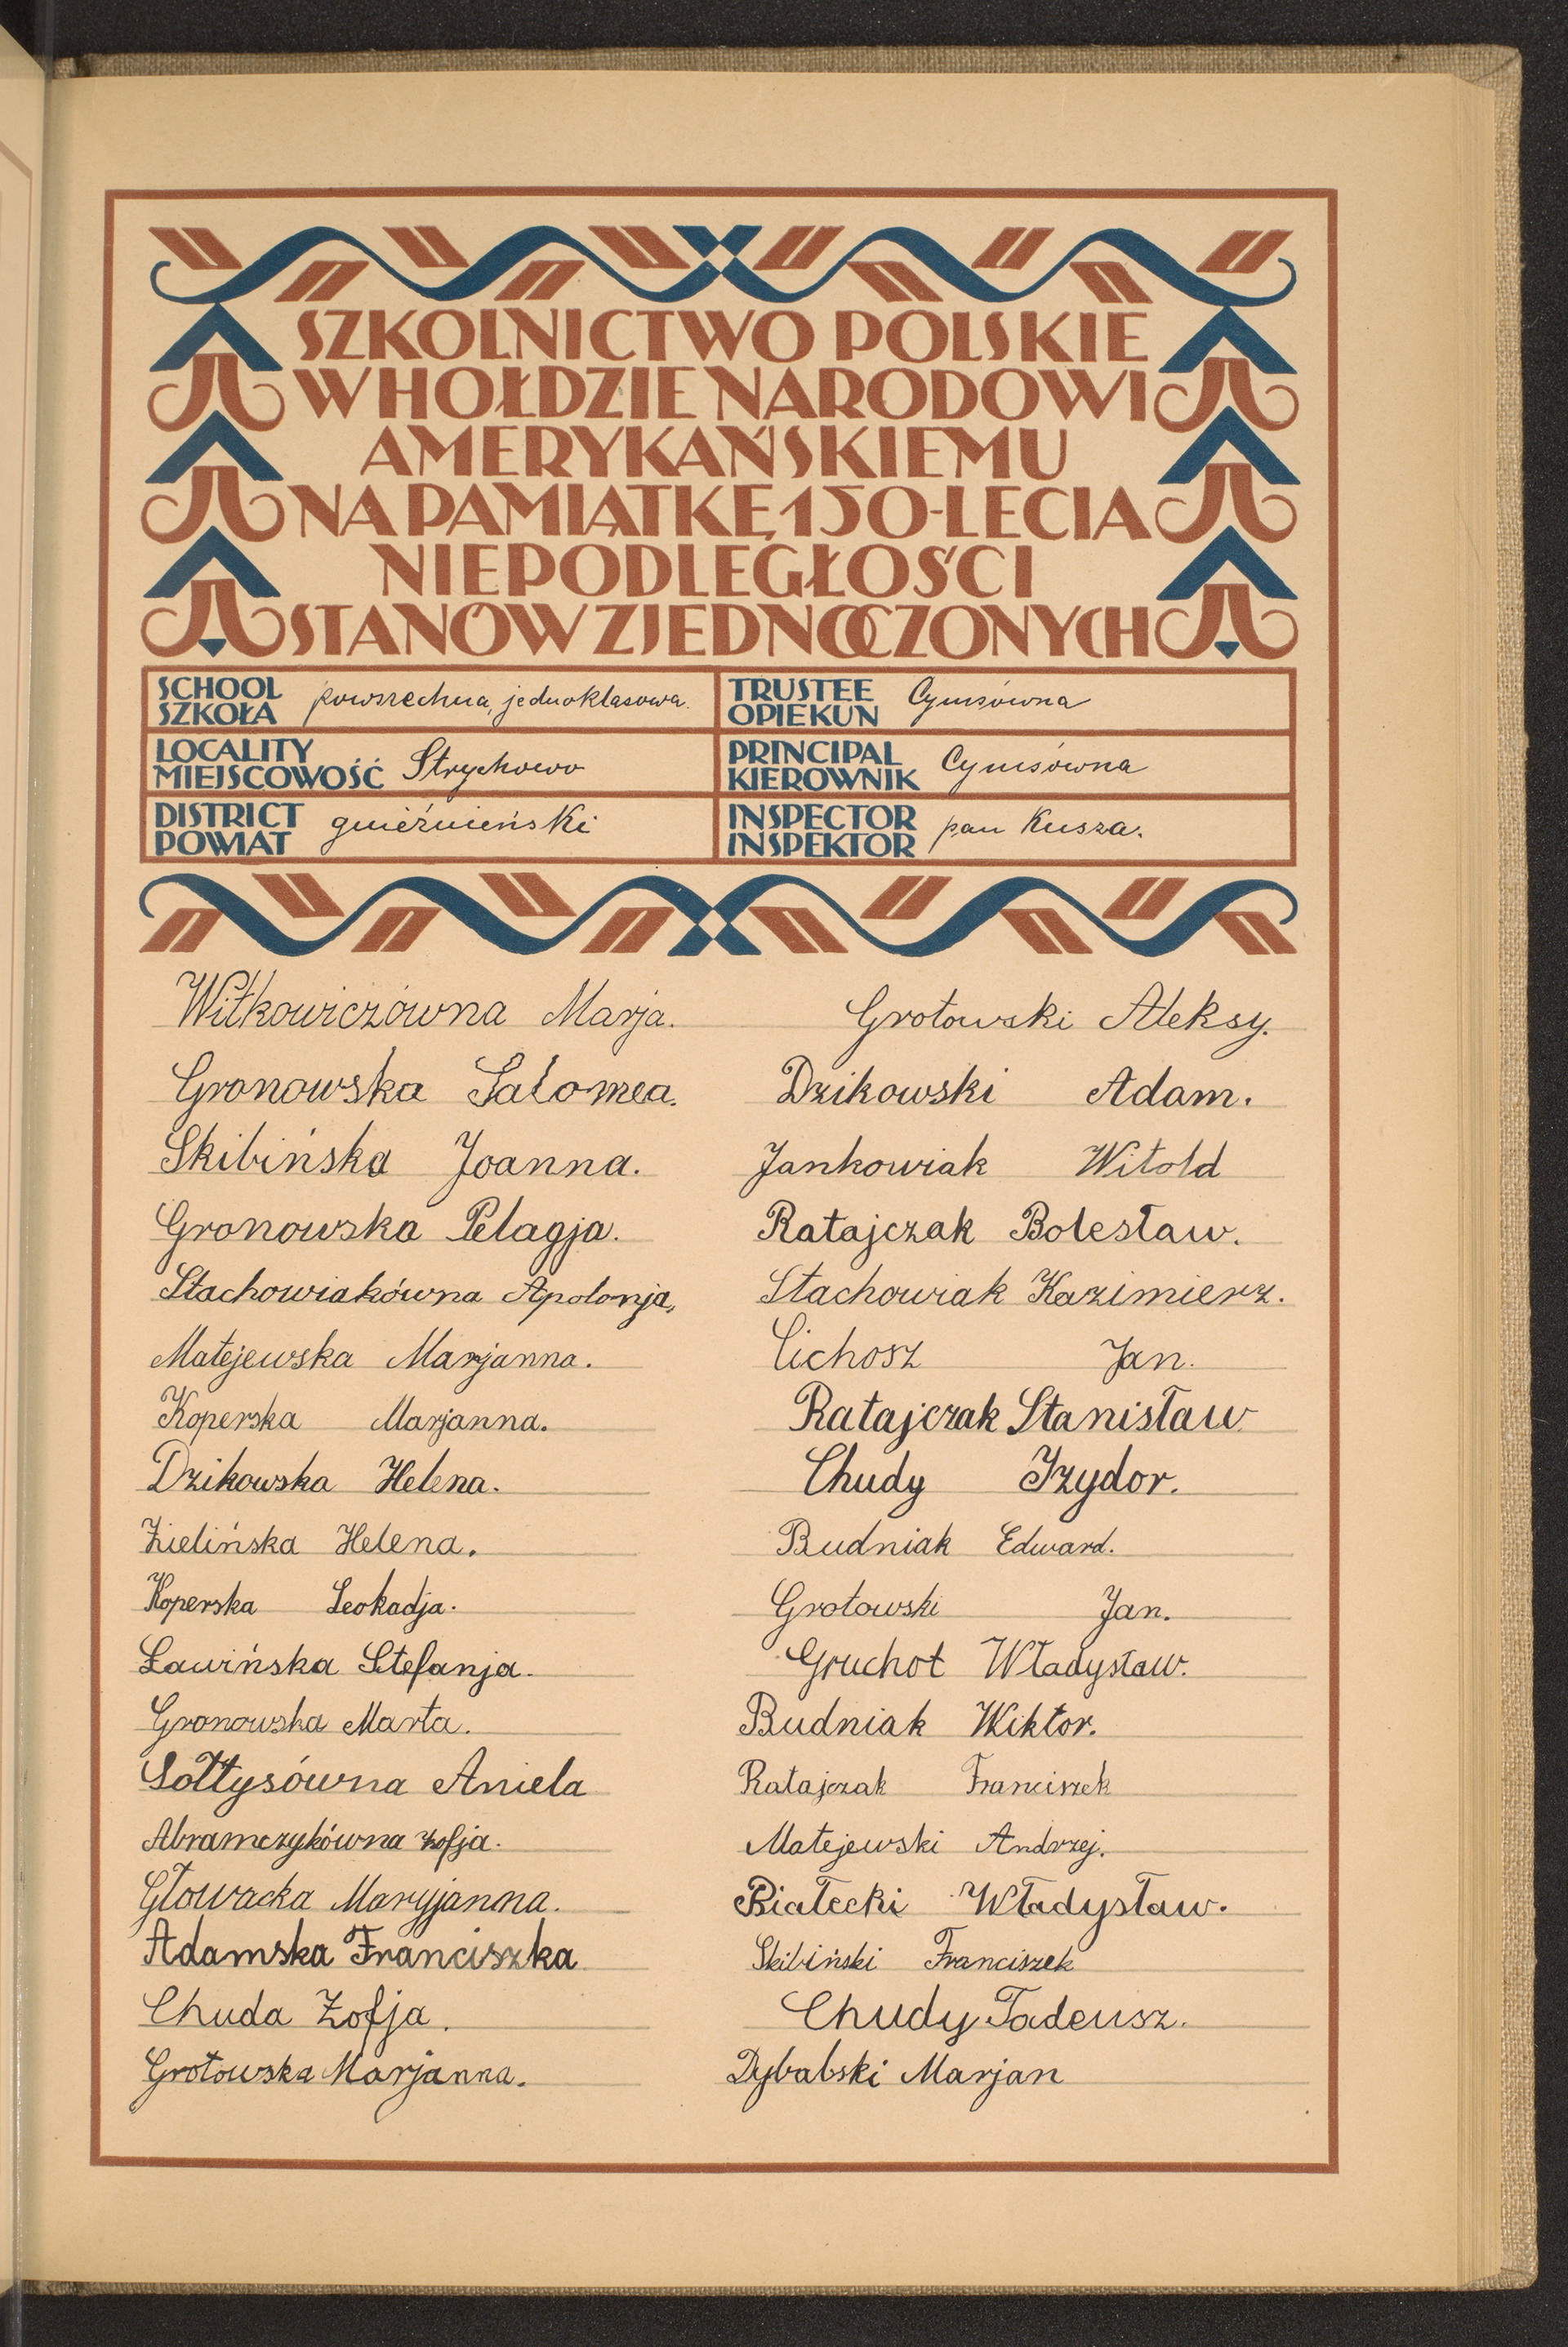 SZKOLNICTWO POLSKIE
W HOŁDZIE NARODOWI
AMERYKAŃSKIEMU
NA PAMIĄTKĘ 150-LECIA
NIEPODLEGŁOŚCI
STANÓW ZJEDNOCZONYCH
SCHOOL
SZKOŁA powszechna, jednoklasowa.
TRUSTEE
OPIEKUN Cymsówna
LOCALITY
MIEJSCOWOŚĆ Strychowo
PRINCIPAL
KIEROWNIK Cymsówna
DISTRICT
POWIAT gnieźnieński
INSPECTOR
INSPEKTOR pan Kusza.
Witkowiczówna Marja.
Gronowska Salomea.
Skibińska Joanna.
Gronowska Pelagja.
Stachowiakówna Apolonja,
Matejewska Marjanna.
Koperska Marjanna.
Dzikowska Helena.
Zielińska Helena.
Koperska Leokadja.
Ławińska Stefanja.
Gronowska Marta.
Sołtysówna Aniela
Abramczykówna Zofja.
Głowacka Maryjanna.
Adamska Franciszka
Chuda Zofja.
Grotowska Marjanna.
Grotowski Aleksy.
Dzikowski Adam.
Jankowiak Witold
Ratajczak Bolesław.
Stachowiak Kazimierz.
Cichosz Jan.
Ratajczak Stanisław
Chudy Izydor.
Budniak Edward.
Grotowski Jan.
Gruchot Władysław.
Budniak Wiktor.
Ratajczak Franciszek
Matejewski Andrzej.
Białecki Władysław.
Skibiński Franciszek
Chudy Tadeusz.
Dybalski Marjan